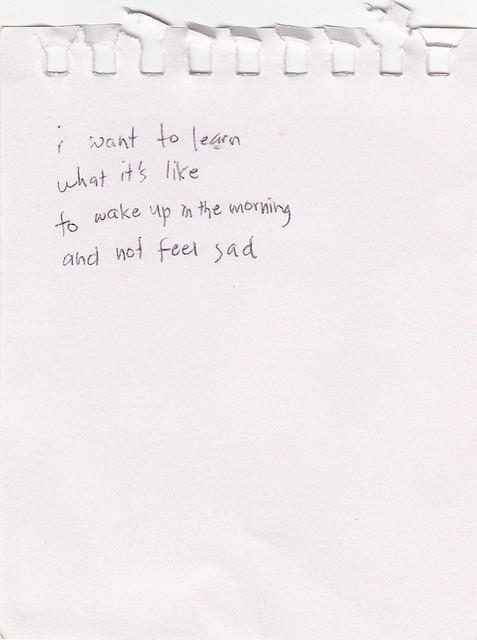 i want to learn
what it's like
to wake up in the morning
and not feel sad